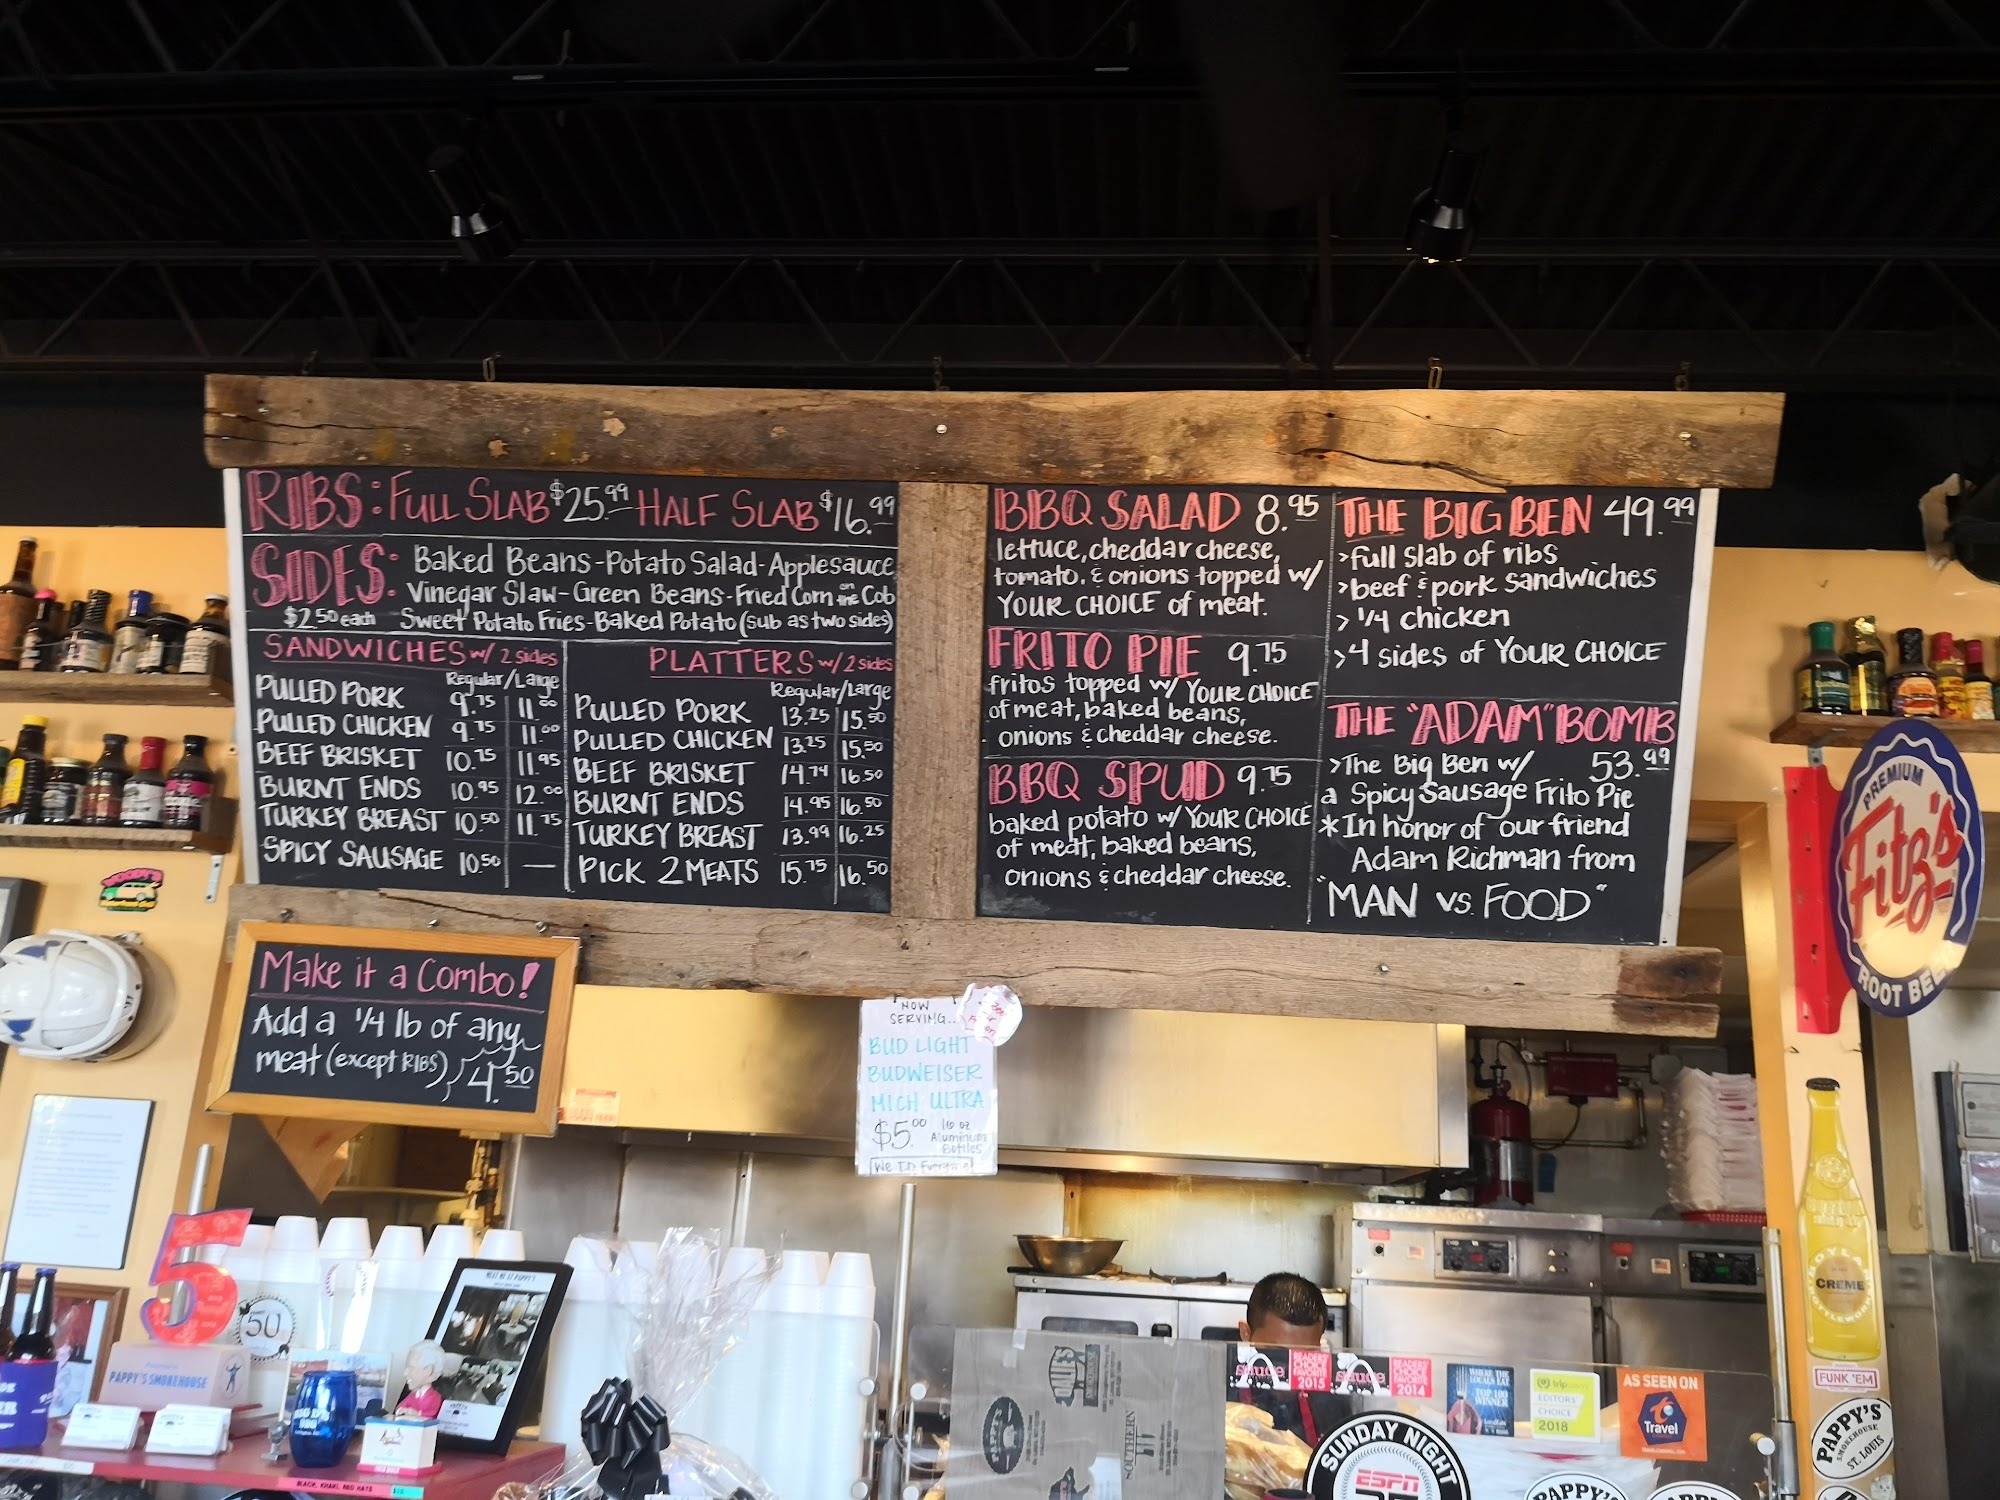 RIBS: FULL SLAB $25.99 HALF SLAB $16.99
SIDES: Baked Beans-Potato Salad-Applesauce
Vinegar Slaw-Green Beans-Fried Corn on the Cob
$2.50 each Sweet Potato Fries-Baked Potato (sub as two sides)
SANDWICHES w/ 2 sides
Regular/Large
PULLED PORK 9.75 11.00
PULLED CHICKEN 9.75 11.00
BEEF BRISKET 10.75 11.95
BURNT ENDS 10.95 12.00
TURKEY BREAST 10.50 11.75
SPICY SAUSAGE 10.50 —
PLATTERS w/ 2 sides
Regular/Large
PULLED PORK 13.25 15.50
PULLED CHICKEN 13.25 15.50
BEEF BRISKET 14.74 16.50
BURNT ENDS 14.95 16.50
TURKEY BREAST 13.99 16.25
PICK 2 MEATS 15.75 16.50
BBQ SALAD 8.95
lettuce, cheddar cheese,
tomato, & onions topped w/
YOUR CHOICE of meat.
FRITO PIE 9.75
fritos topped w/ YOUR CHOICE
of meat, baked beans,
onions & cheddar cheese.
BBQ SPUD 9.75
baked potato w/ YOUR CHOICE
of meat, baked beans,
onions & cheddar cheese.
THE BIG BEN 49.99
>full slab of ribs
>beef & pork sandwiches
> 1/4 chicken
>4 sides of YOUR CHOICE
THE "ADAM" BOMB
>The Big Ben w/ 53.99
a Spicy Sausage Frito Pie
*In honor of our friend
Adam Richman from
"MAN VS. FOOD"
Make it a Combo!
Add a 1/4 lb of any
meat (except RIBS) 4.50
NOW
SERVING...
BUD LIGHT
BUDWEISER
MICH ULTRA
$5.00 16 oz
Aluminum
Bottles
We ID Everyone!
PREMIUM
Fitz's
ROOT BEER
CREME
FUNK 'EM
PAPPY'S
SMOKEHOUSE
ST. LOUIS
5
50
MEAT ME AT PAPPY'S
PAPPY'S SMOKEHOUSE
BLACK, KHAKI, RED HATS
SOUTHERN
sauce
READERS'
CHOICE
FAVORITE
2015
sauce
READERS'
CHOICE
FAVORITE
2014
WHERE THE
LOCALS EAT
TOP 100
WINNER
EDITORS'
CHOICE
2018
AS SEEN ON
Travel
SUNDAY NIGHT
ESPN
PAPPY'S